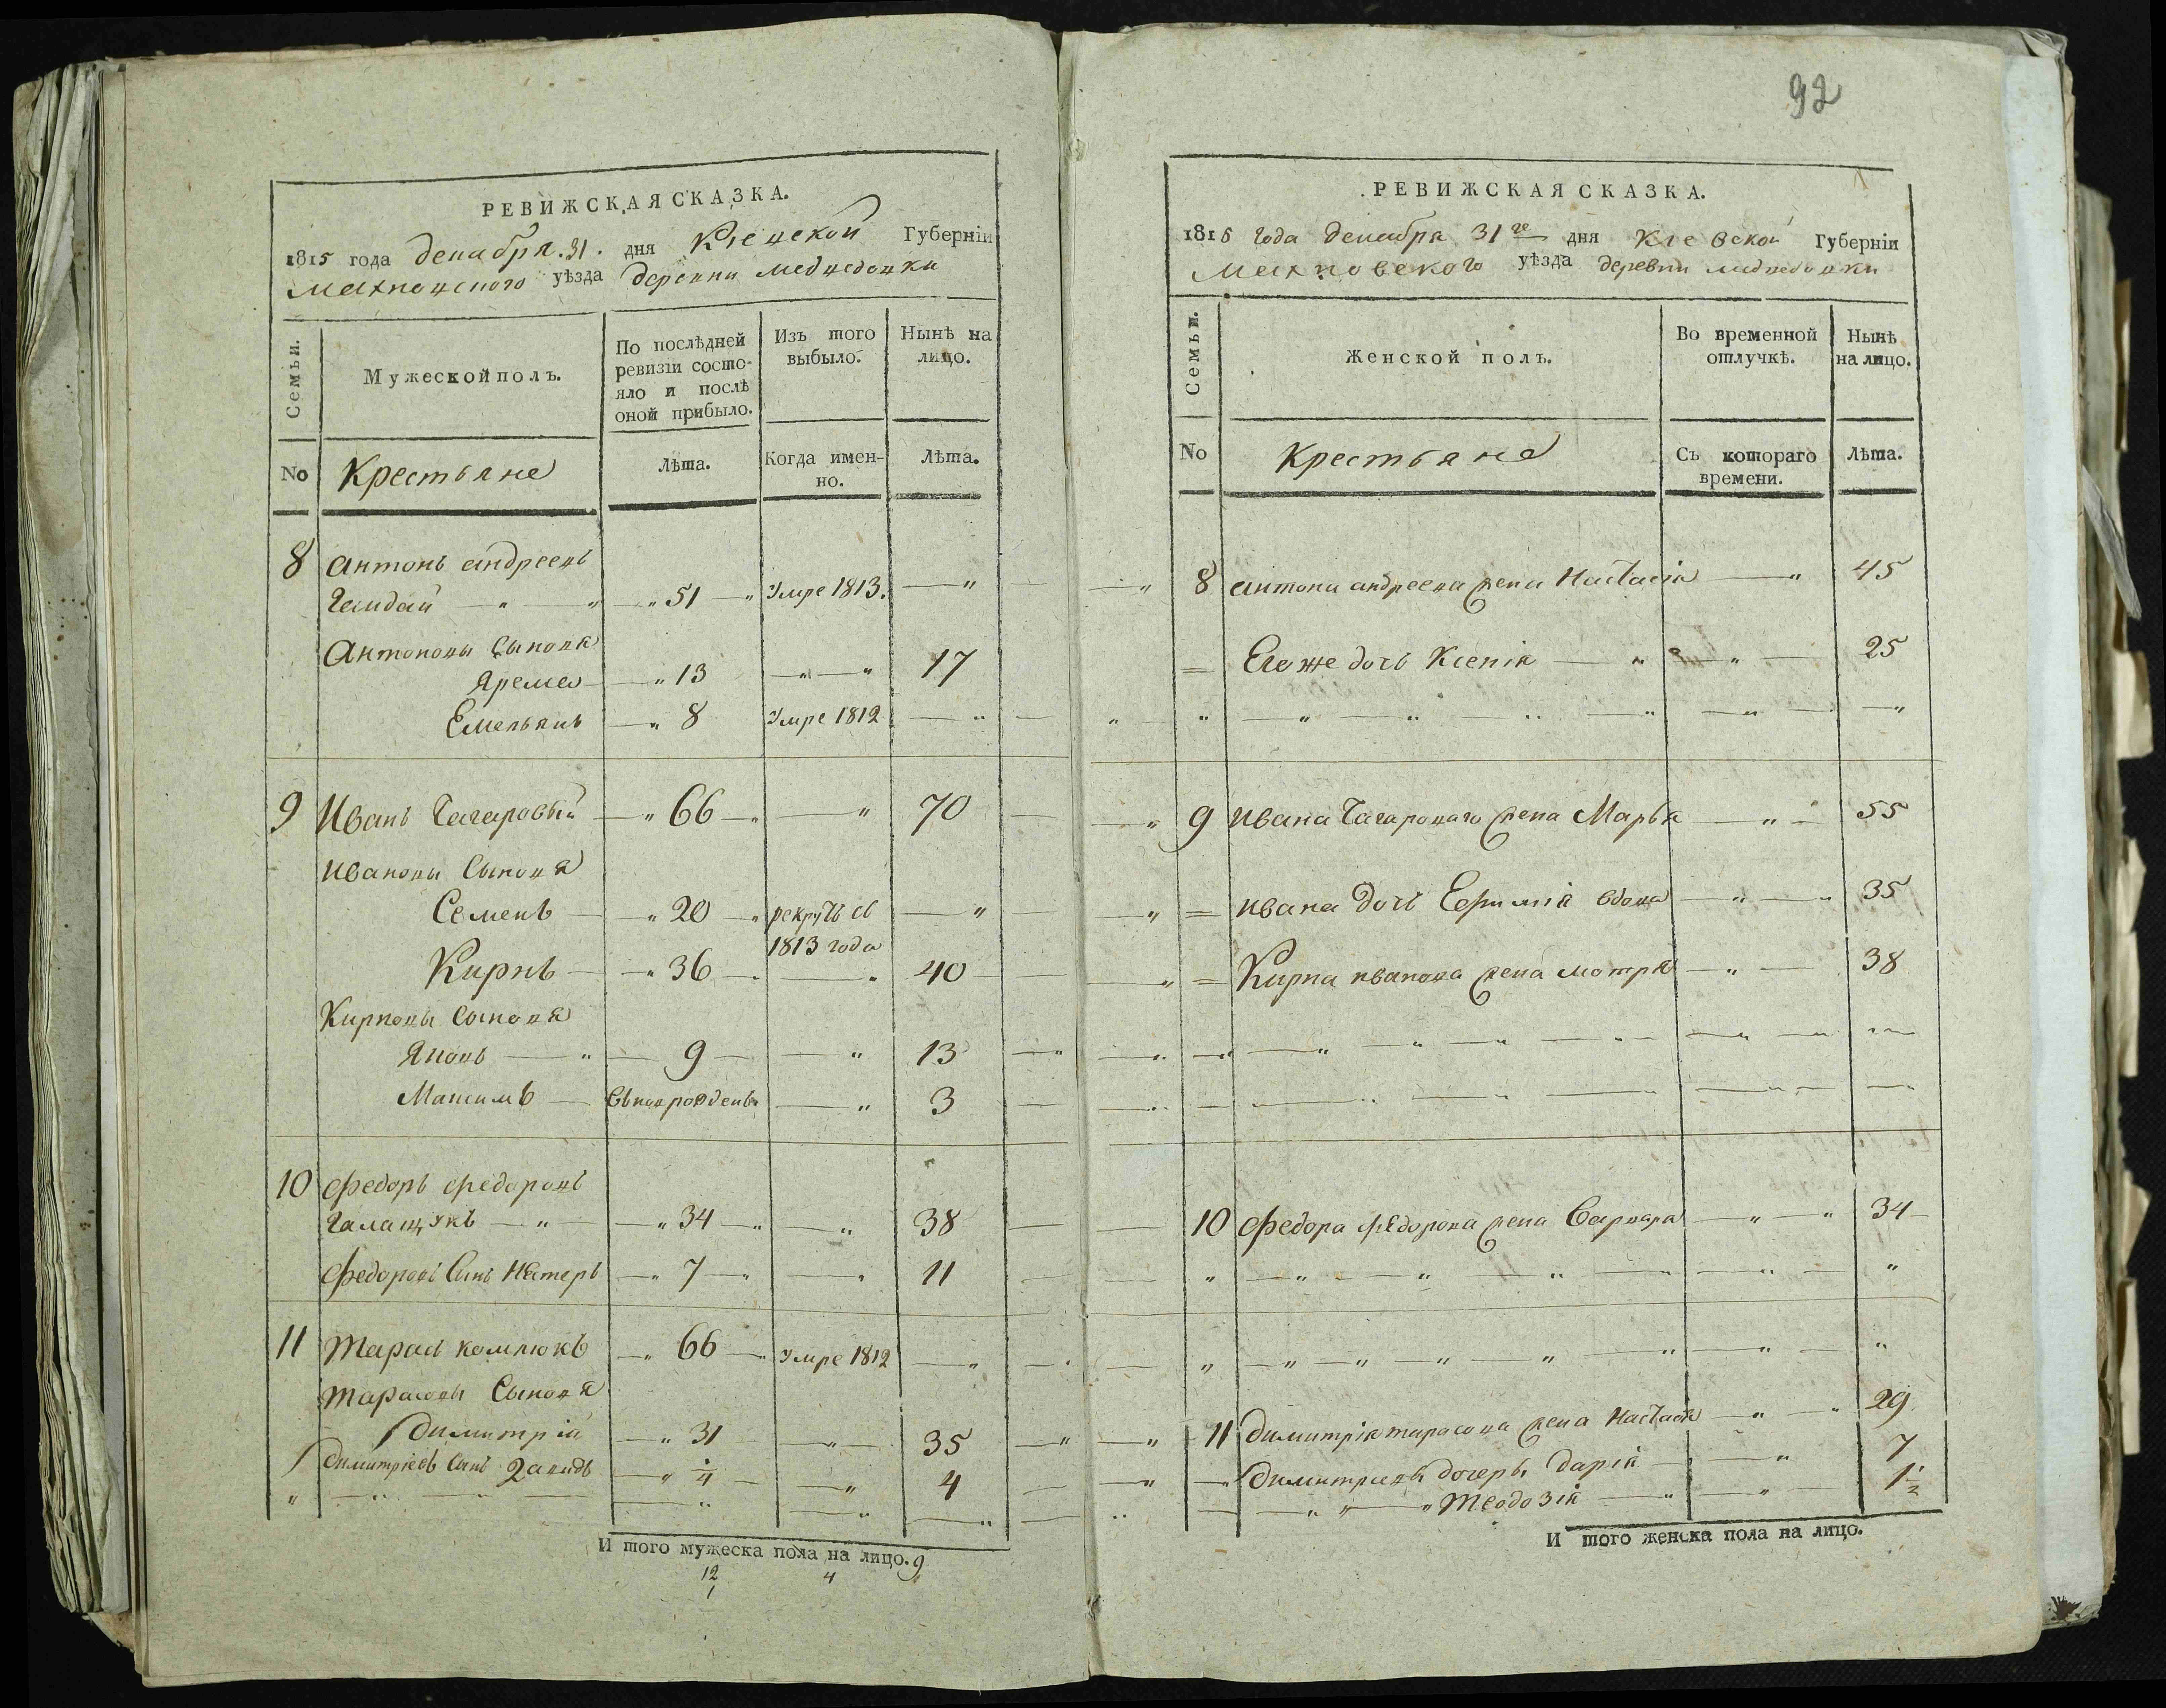 92
РЕВИЖСКАЯ СКАЗКА.
1815 года декабря 31. дня Кіевской Губерніи
Махновского уѣзда деревни Медведовки
Семьи.
Мужеской полъ.
По послѣдней ревизіи состо-
яло и послѣ
оной прибыло.
Изъ того
выбыло.
Нынѣ на
лицо.
No
Крестьяне
Лѣта.
Когда имен-
но.
Лѣта.
8 Антонъ андреевъ
Гайдай 51 Умре 1813.
Антоновы Сыновя
Ярема 13 17
Емельянъ 8 Умре 1812
9 Иванъ Чагаровый 66 70
Ивановы Сыновя
Семенъ 20 рекрутъ съ
1813 года
Кирпъ 36 40
Кирповы Сыновя
Яковъ 9 13
Максимъ вноврожденъ 3
10 Федоръ Федоровъ
Галащукъ 34 38
Федоровъ Сынъ Нестеръ 7 11
11 Тарасъ 66 Умре 1812
Тарасовы Сыновя
Димитрій 31 35
Димитріевъ Сынъ Давидъ 1/4 4
И того мужеска пола на лицо. 9
12 4
1
РЕВИЖСКАЯ СКАЗКА.
1815 года декабря 31го дня Кіевской Губерніи
Махновского уѣзда деревни Медведовки
Семьи.
Женской полъ.
Во временной
отлучкѣ.
Нынѣ
на лицо.
No
Крестьяне
Съ котораго
времени.
Лѣта.
8 Антона андреева жена Настасія 45
Его же дочь Ксенія 25
9 Ивана Чагароваго жена Марья 55
Ивана дочь Ефимія вдова 35
Кирпа иванова жена мотря 38
10 Федора Федорова жена Варвара 34
11 Димитрія тарасова жена Настася 29
Димитріевы дочеры Дарія 7
Теодозія 1 1/2
И того женска пола на лицо.